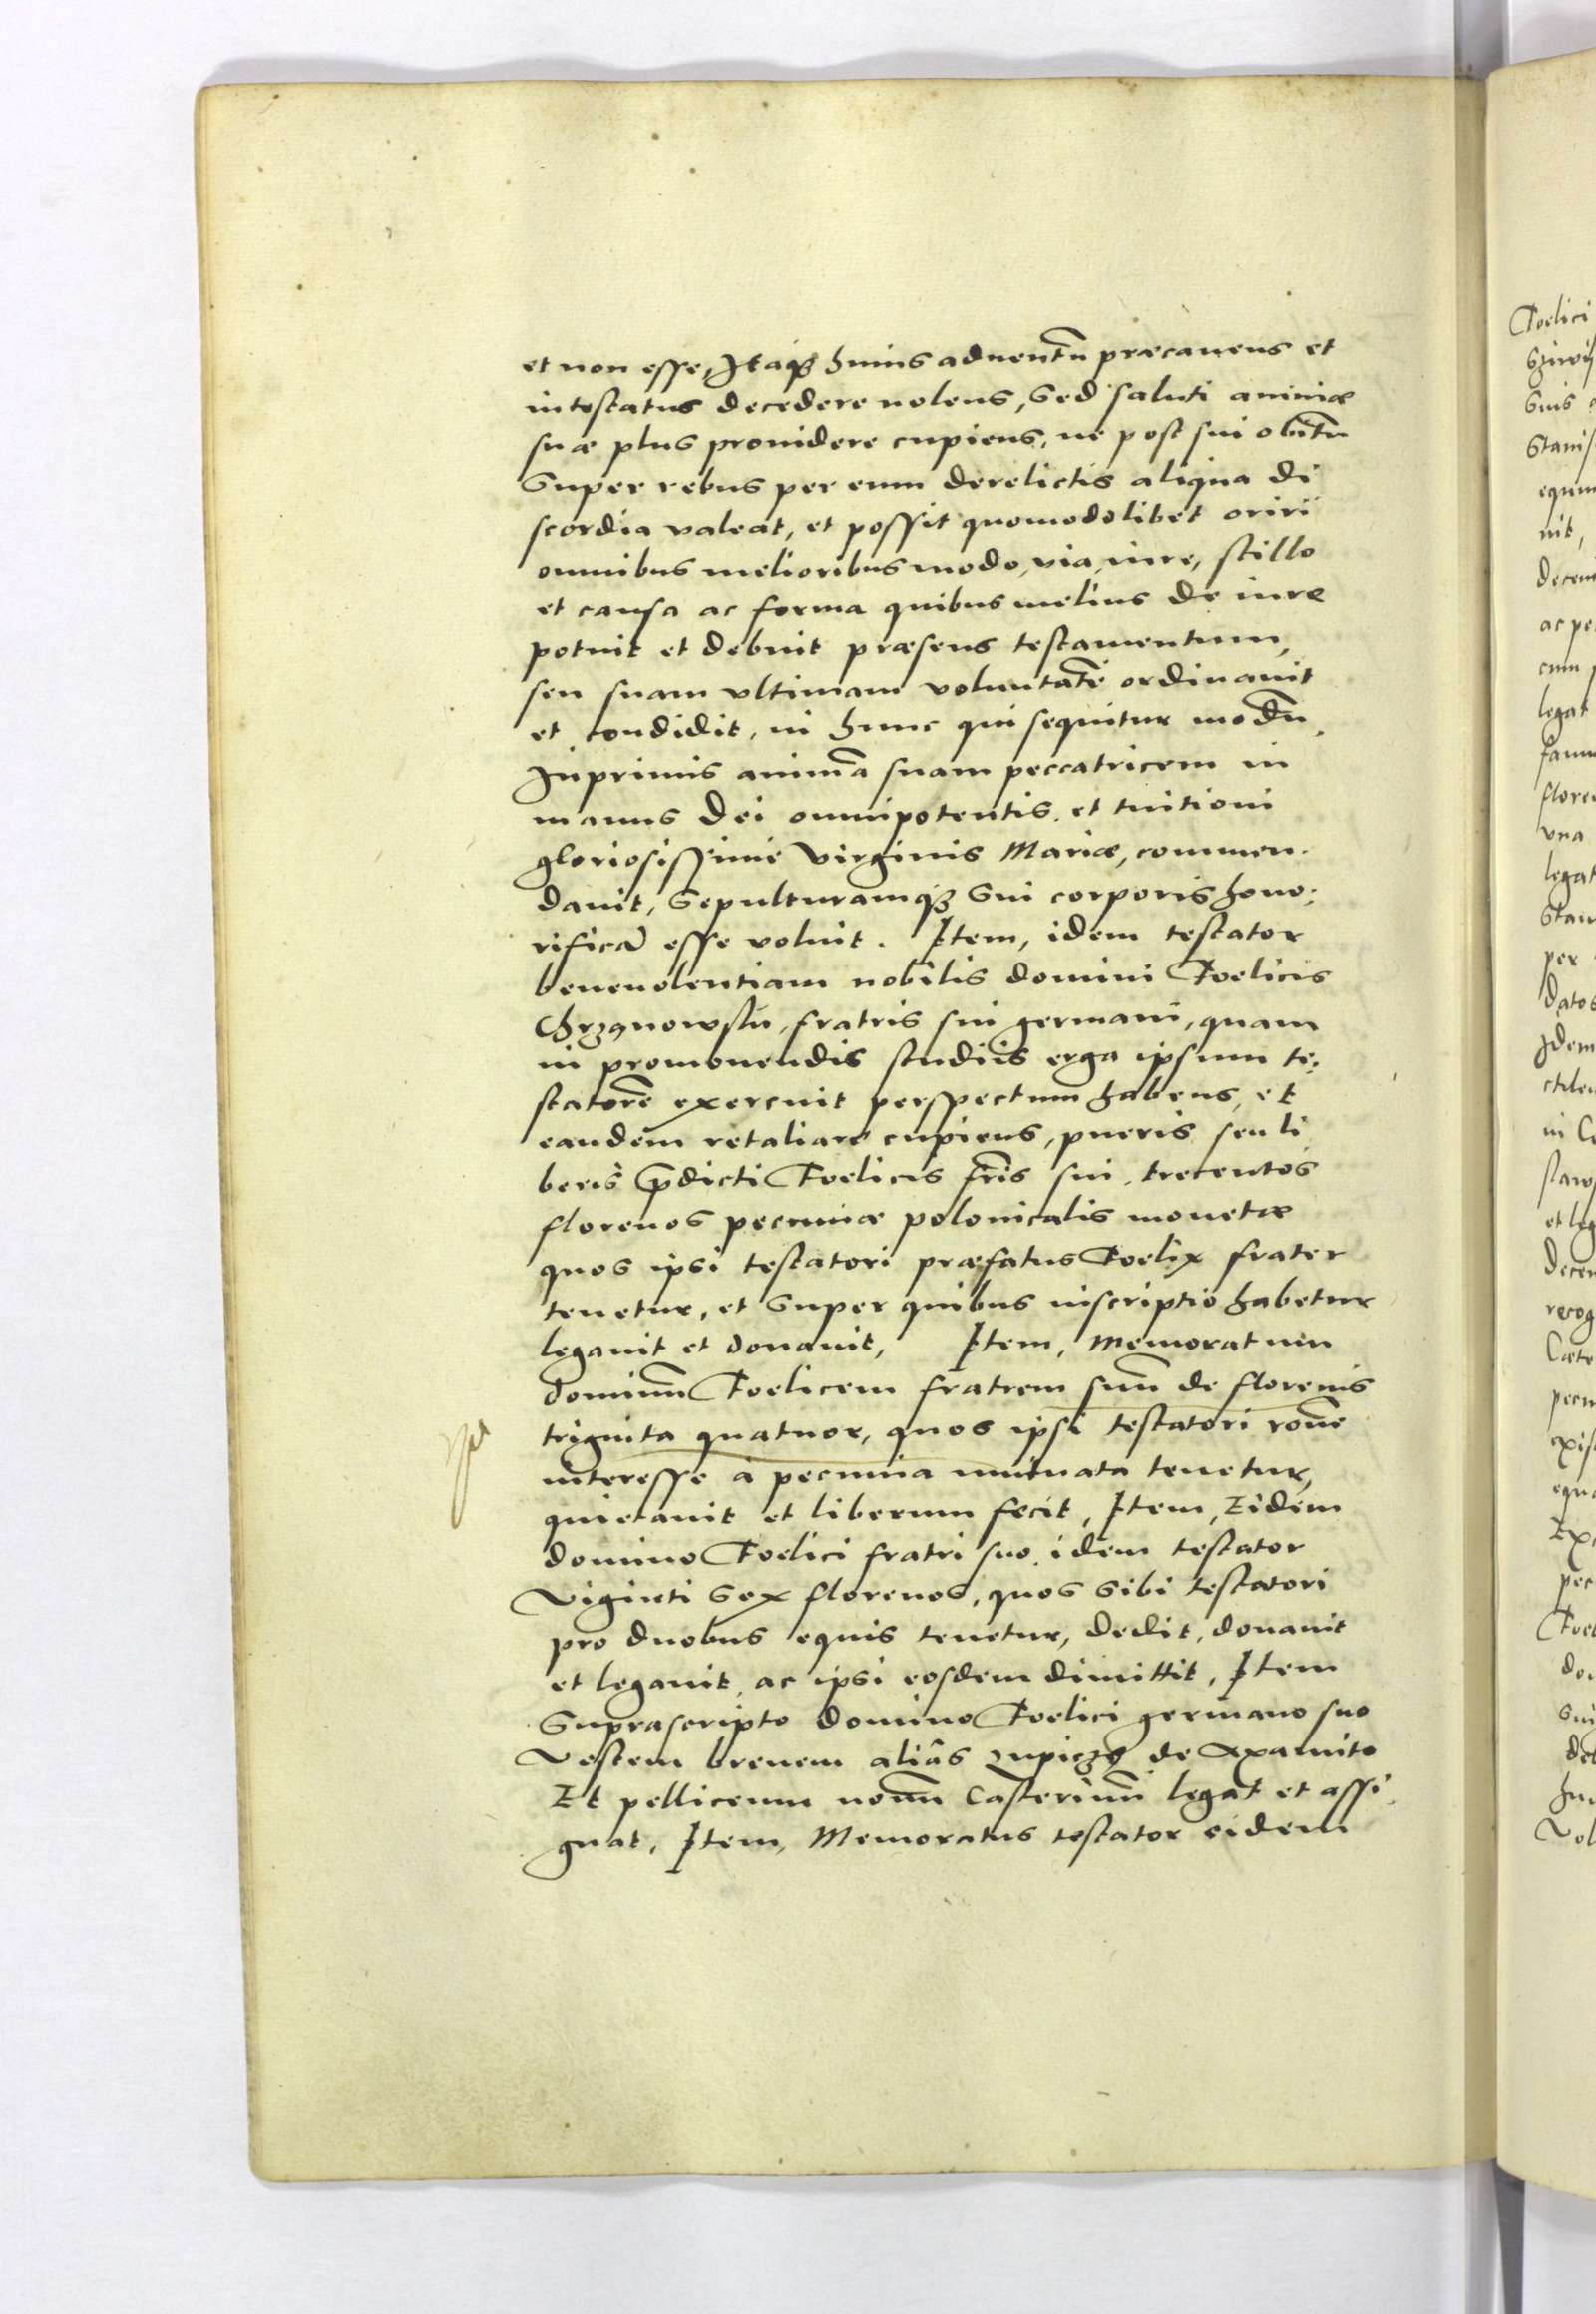 et non esse, Itaq₃ huius aduentũ præcauens et
intestatus decedere nolens, sed saluti animæ
suæ plus prouidere cupiens, ne post sui obitũ
super rebus per eum derelictis aliqua di
scordia valeat, et possit quomodolibet oriri
omnibus melioribus modo, via, iure, stillo
et causa ac forma quibus melius de iure
potuit et debuit præsens testamentum,
seu suam vltimam voluntatẽ ordinauit
et condidit, in hunc qui sequitur modũ,
Inprimis animã suam peccatricem in
manus Dei omnipotentis, et tuitioni
gloriosissimè Virginis Mariæ, commen-
dauit, sepulturamq₃ sui corporis hono:
rificã esse voluit. Item, idem testator
beneuolentiam nobilis domini Foelicis
Chrzanowski, fratris sui germani, quam
in promouendis studiis erga ipsum te:
statorẽ exercuit perspectum habens, et
eandem retaliare cupiens, pueris seu li
beris p̃dicti Foelicis fr̃is sui, trecentos
florenos pecuniæ polonicalis monetæ
quos ipsi testatori præfatus Foelix frater
tenetur, et super quibus inscriptio habetur
legauit et donauit, Item, Memoratum
dominũ Foelicem fratrem suũ de florenis
triginta quatuor, quos ipsi testatori rõne
interesse à pecunia mutuata tenetur,
quietauit et liberum fecit, Item, Eidem
domino Foelici fratri suo, idem testator
Viginti sex florenos, quos sibi testatori
pro duobus equis tenetur, dedit, donauit
et legauit, ac ipsi eosdem dimittit, Item
suprascripto domino Foelici germano suo
Vestem breuem aliâs zupiczę de Axamito
Et pelliceum nouũ Casterinũ legat et assi
gnat, Item, Memoratus testator eidem